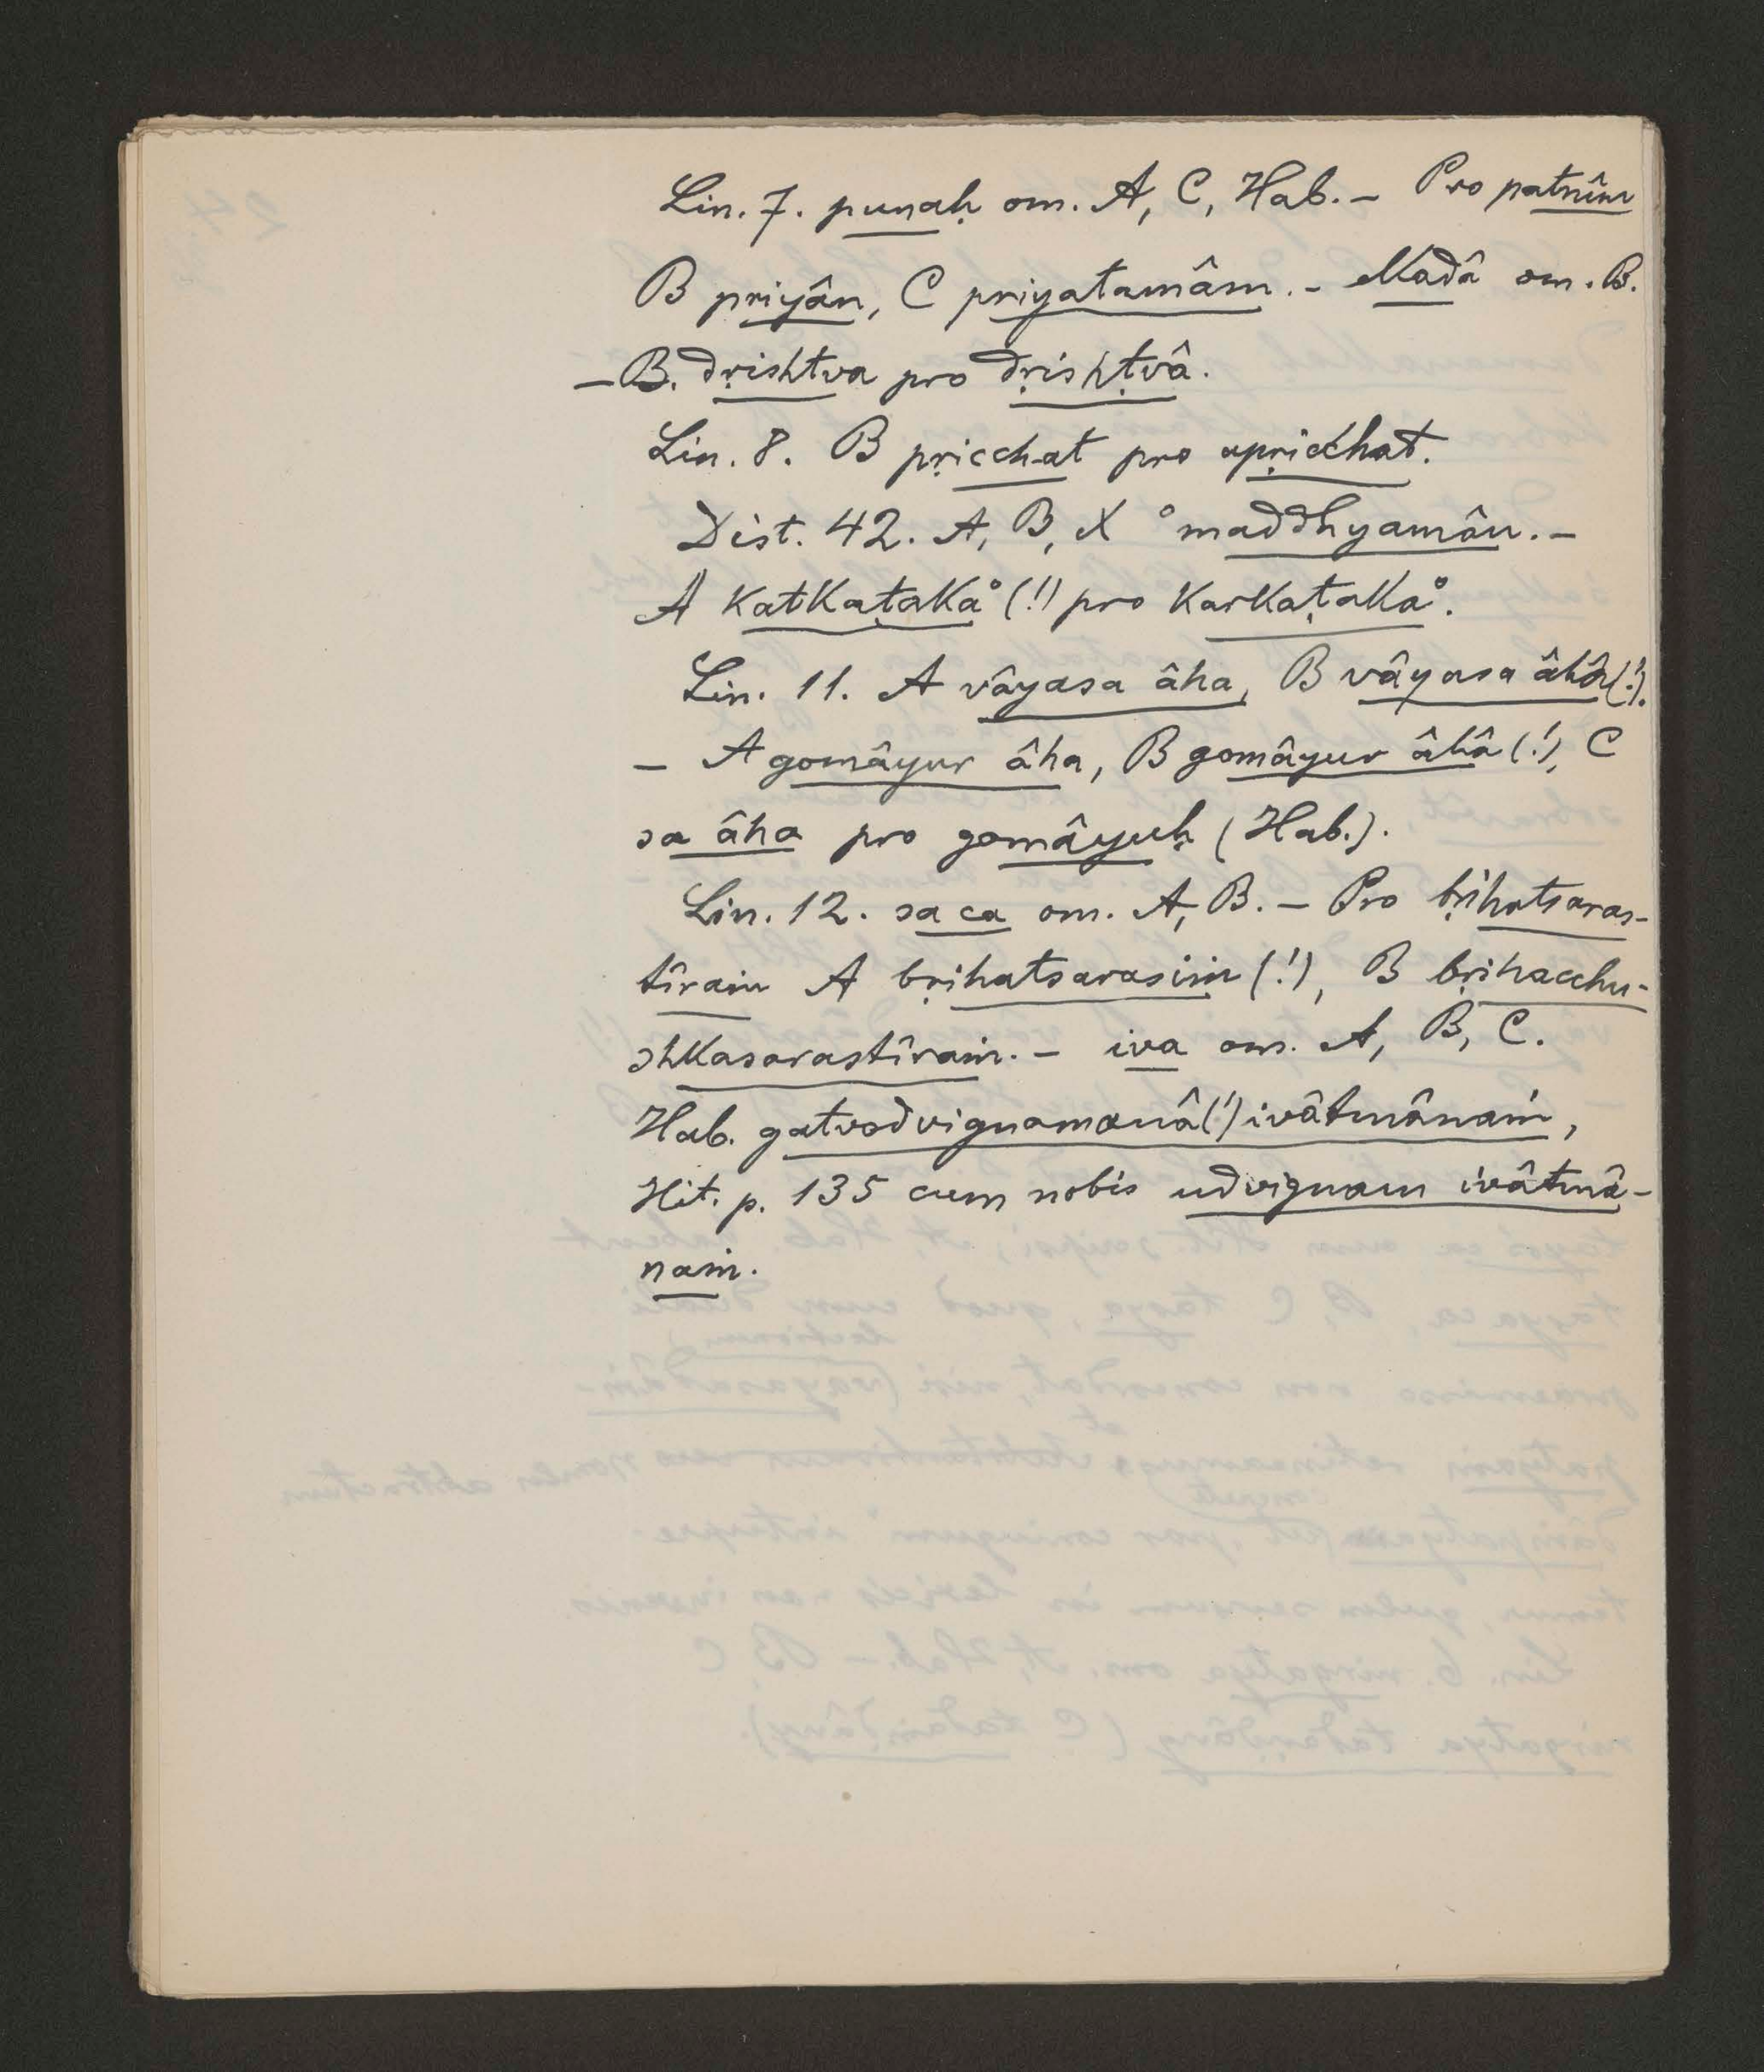 Lin. 7. punaḥ om. A, C, Hab. – Pro patnîm
B priyân, C priyatamâm. – Madâ om. B.
– B. dṛishtva pro dṛishṭvâ.
Lin. 8. B pṛicchat pro apṛicchat.
Dist. 42. A, B, X °maddhyamân. –
A katkaṭaka° (!) pro karkaṭaka°.
Lin. 11. A vâyasa âha, B vâyasa âhâ (!).
– A gomâyur âha, B gomâyur âhâ (!), C
sa âha pro gomâyuḥ (Hab.).
Lin. 12. sa ca om. A, B. – Pro bṛihatsaras-
tîraṁ A bṛihatsarasiṁ (!), B bṛihacchu-
shkasarastîraṁ. – iva om. A, B, C.
Hab. gatvodvignamanâ (!) ivâtmânaṁ,
Hit. p. 135 cum nobis udvignam ivâtmâ-
naṁ.